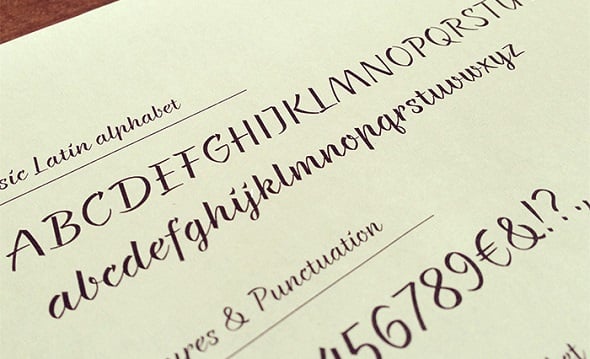 sic Latin alphabet
ABCDEFGHIJKLMNOPQRSTU
abcdefghijklmnopqrstuvwxyz
ures & Punctuation
456789€&!?.,